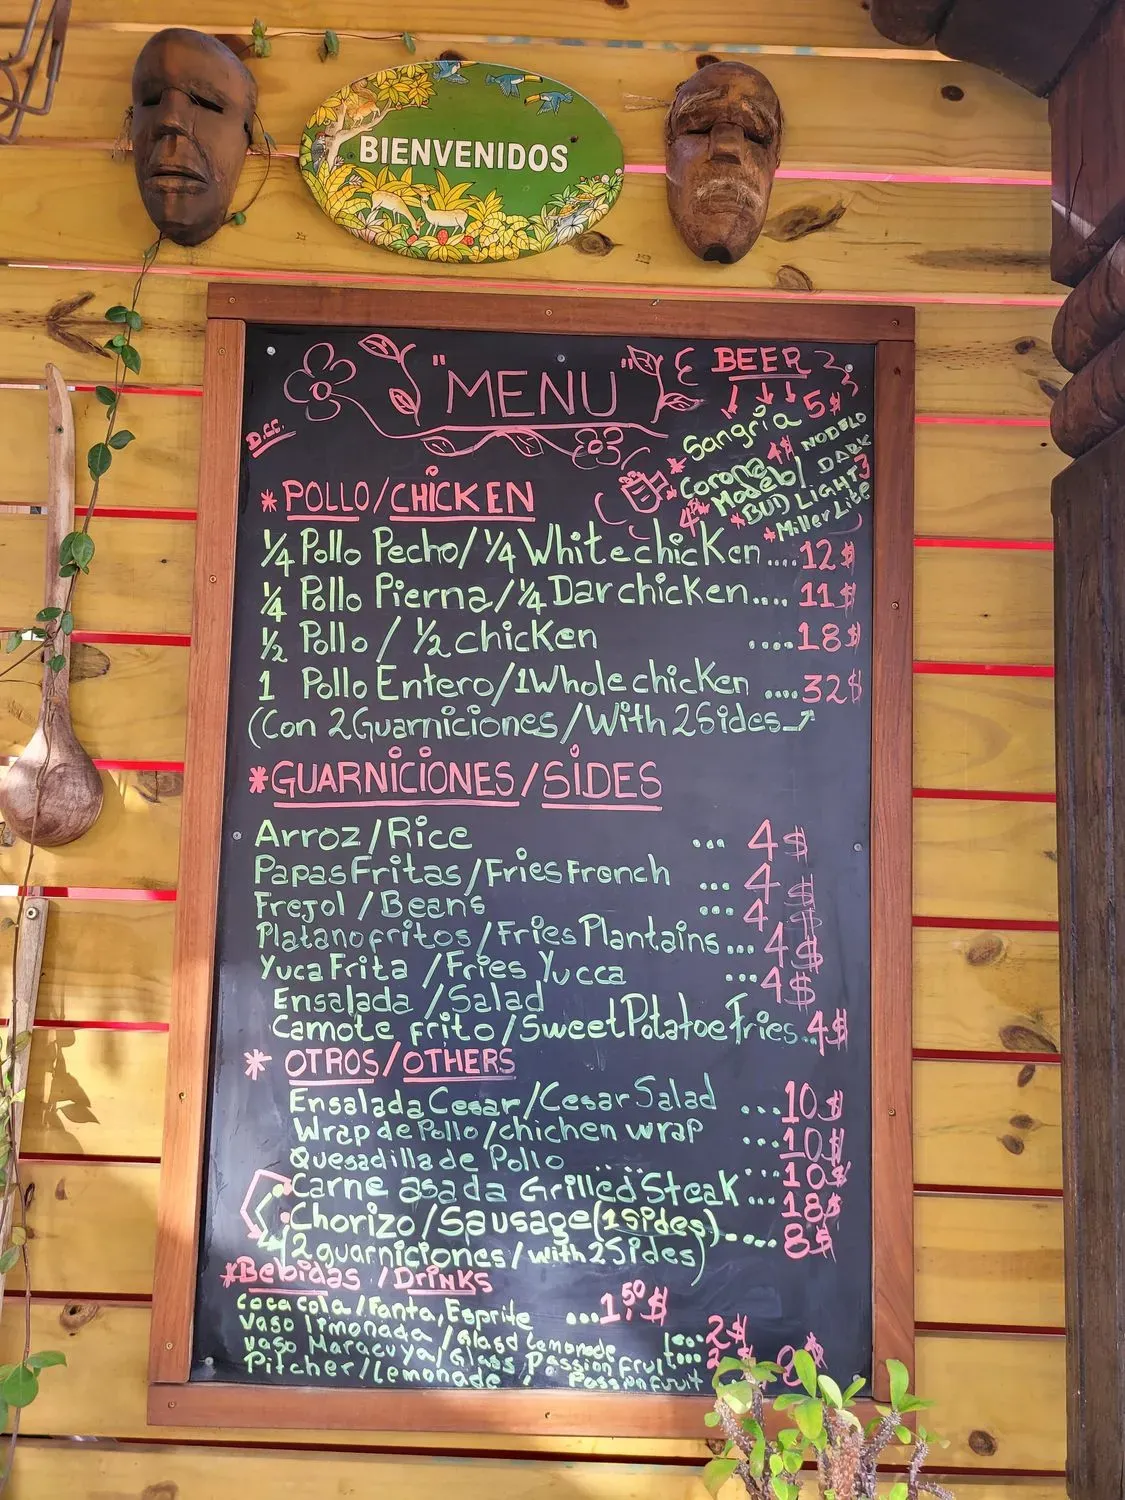 BIENVENIDOS
"MENU"
D.CC.
BEER
Sangria 5$
Corona 4$
Modelo 4$
MODELO DARK
*BUD LIGHT 3
*Miller Lite
* POLLO/CHICKEN
¼ Pollo Pecho/¼ White chicKen....12$
¼ Pollo Pierna/¼ Dar chicken.... 11$
½ Pollo / ½ chicKen ....18$
1 Pollo Entero/1Whole chicKen ....32$
(Con 2Guarniciones/With 2Sides
*GUARNICIONES/SIDES
Arroz/Rice ... 4$
Papas Fritas/Fries Fronch ... 4$
Frejol/Beans ... 4$
Platano fritos/Fries Plantains... 4$
Yuca Frita /Fries Yucca ...4$
Ensalada /Salad
Camote frito/Sweet Potatoe Fries..4$
* OTROS/OTHERS
Ensalada Cesar/Cesar Salad ...10$
Wrap de Pollo/chichen wrap ...10$
Quesadilla de Pollo ........ 10$
Carne asada Grilled Steak...18$
Chorizo/Sausage(1Sides)....8$
(2 guarniciones/with 2Sides)
*Bebidas /Drinks
Coca Cola/Fanta, Esprite ...1,50$
Vaso limonada /Glasd Lemonade 1... 2$
Vaso Maracuya/Glass Passion fruit... 2
Pitcher/Lemonade / Passion fruit 8$